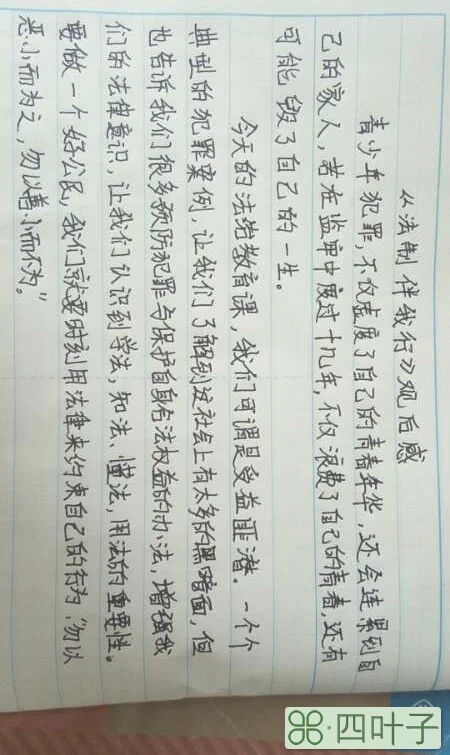 《法制伴我行》观后感
青少年犯罪，不仅虚度了自己的青春年华，还会连累到自
己的家人，若在监牢中度过十几年，不仅浪费了自己的青春，还有
可能毁了自己的一生。
今天的法制教育课，我们可谓是受益匪潜。一个个
典型的犯罪案例，让我们了解到这社会上有太多的黑暗面，但
也告诉我们很多预防犯罪与保护自身合法权益的办法，增强我
们的法律意识，让我们认识到学法，知法，懂法，用法的重要性。
要做一个好公民，我们就要时刻用法律来约束自己的行为，“勿以
恶小而为之，勿以善小而不为。”
四叶子